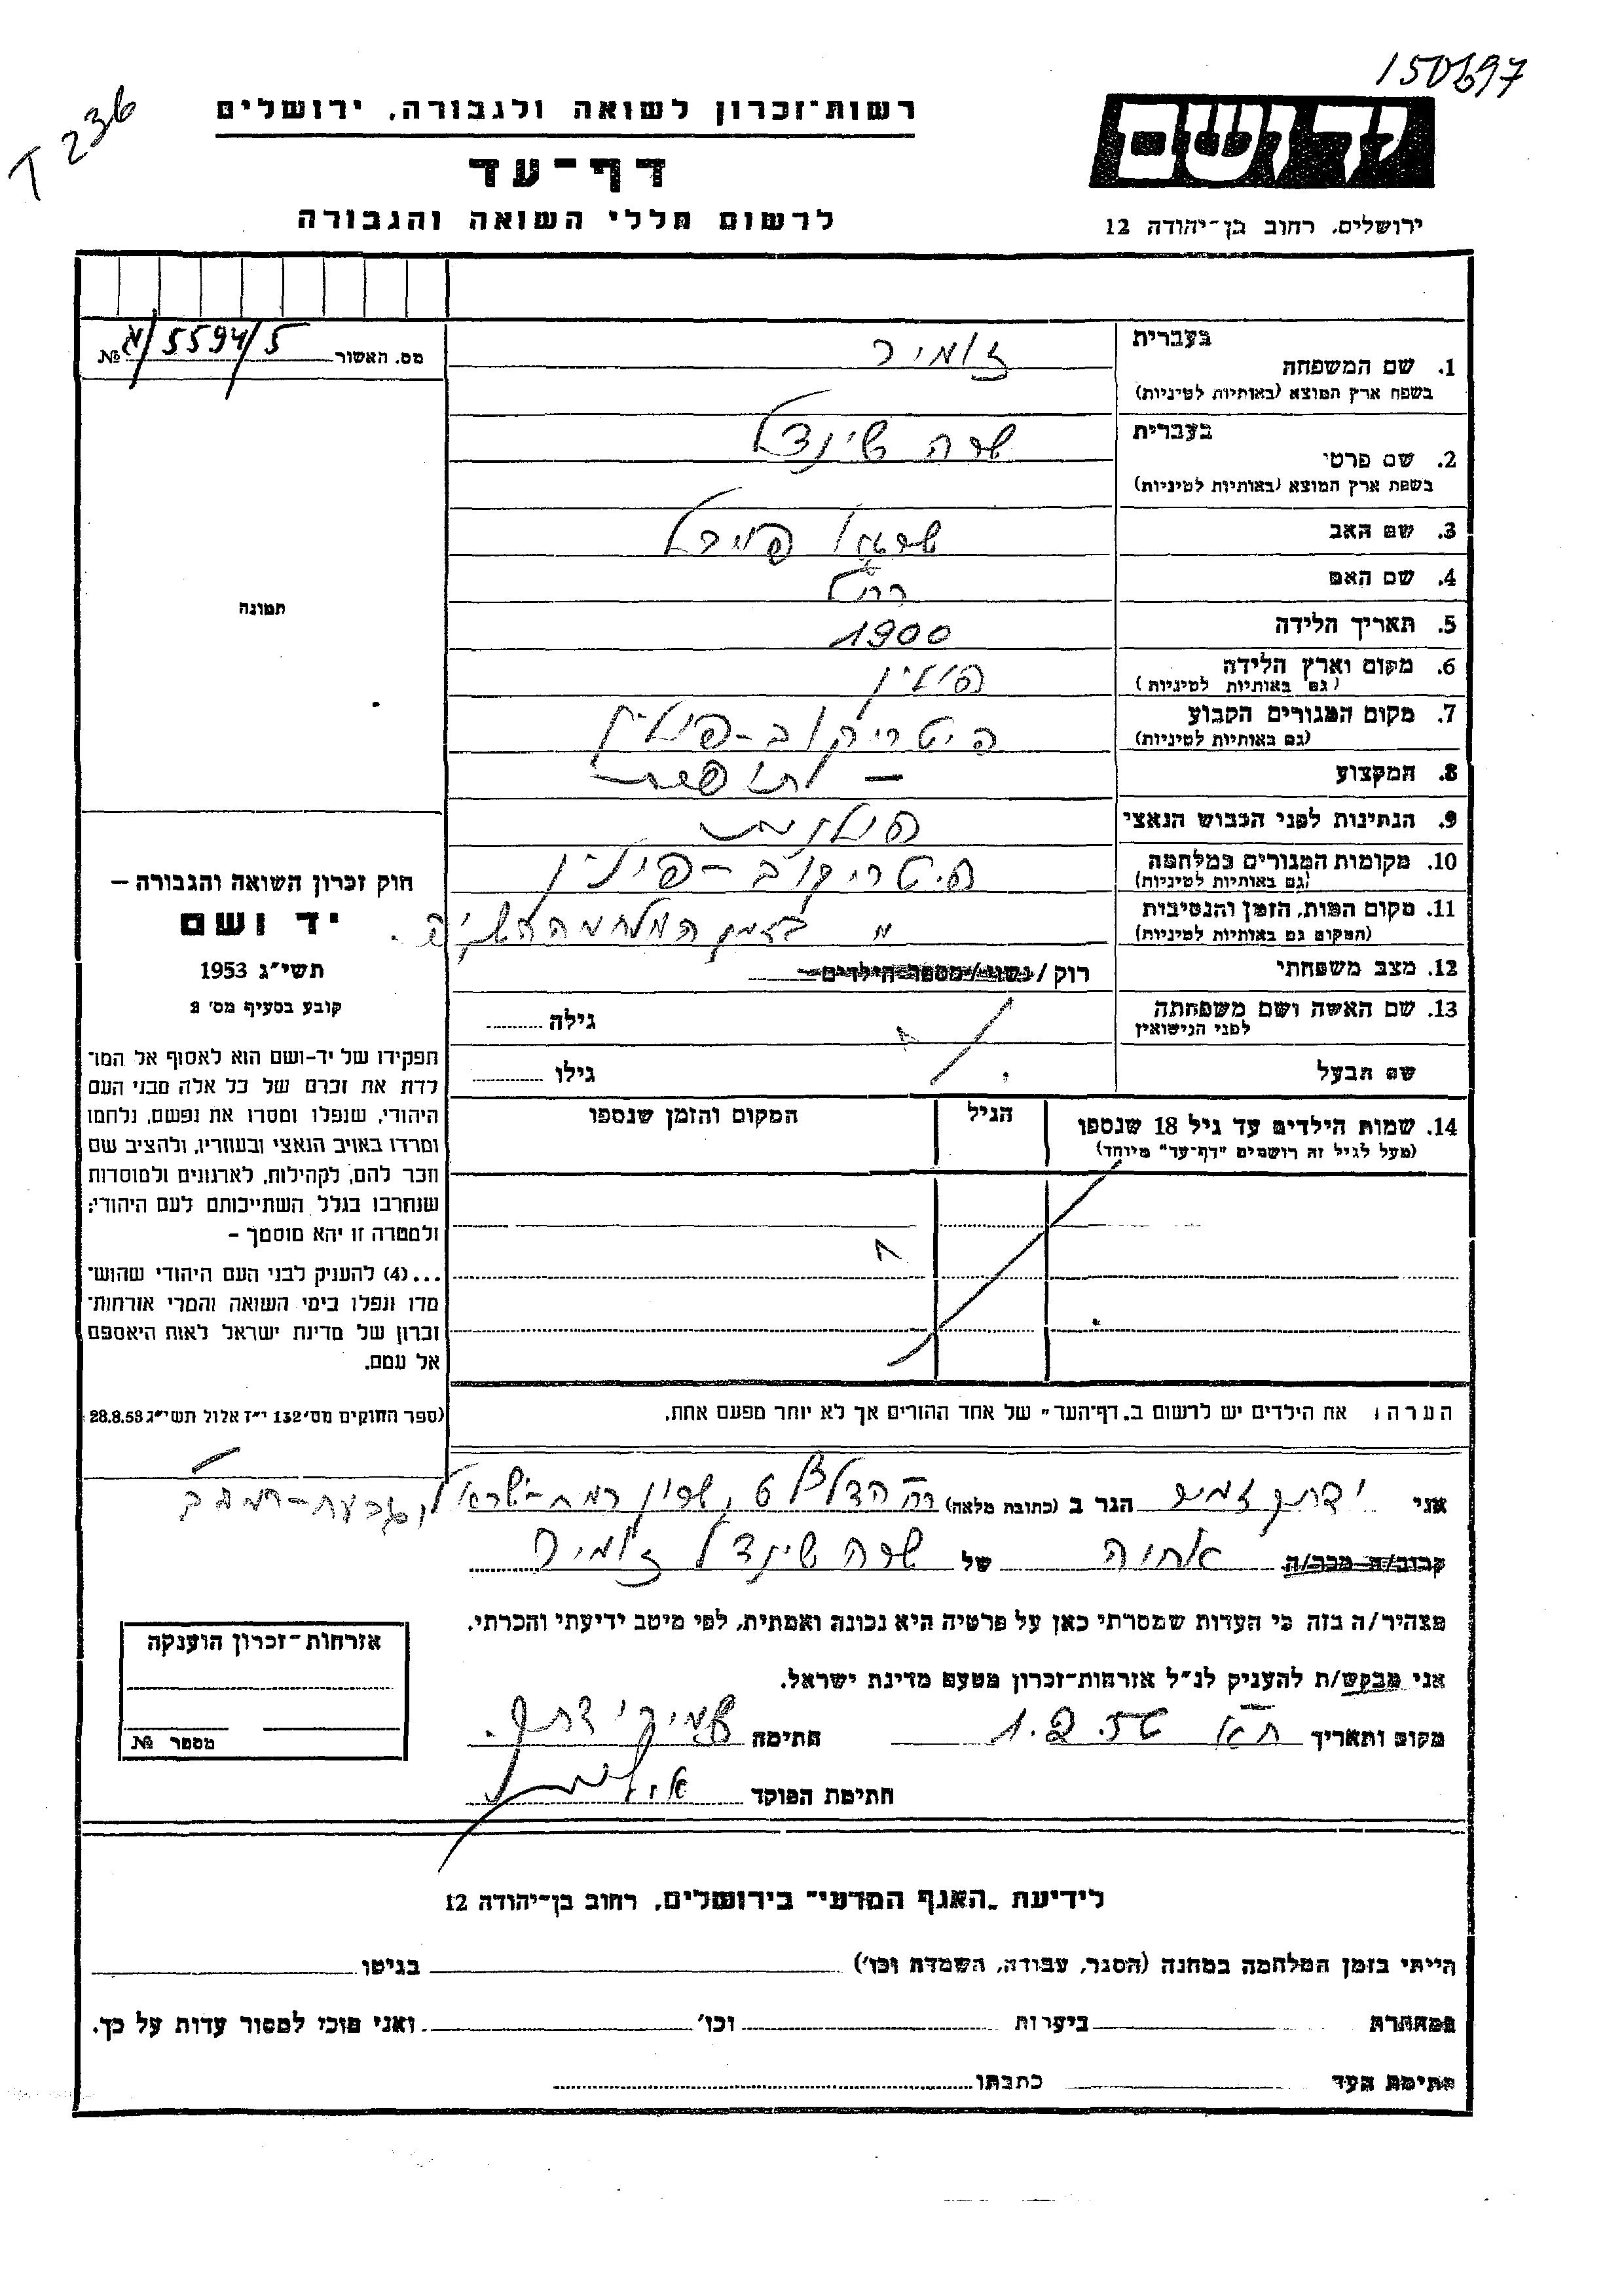 150697
T 236
רשות-זכרון לשואה ולגבורה, ירושלים
דף-עד
לרשום חללי השואה והגבורה
ידושם
ירושלים, רחוב בן-יהודה 12
מס. האשור 5594/5/א №
בעברית
1. שם המשפחה
זמיר
בשפת ארץ המוצא (באותיות לטיניות)
בעברית
2. שם פרטי
שרה שינדל
בשפת ארץ המוצא (באותיות לטיניות)
3. שם האב
4. שם האם רחל
5. תאריך הלידה 1900
6. מקום וארץ הלידה פולין
(גם באותיות לטיניות)
7. מקום המגורים הקבוע פיטריקוב-פולין
(גם באותיות לטיניות)
8. המקצוע — תופרת
9. הנתינות לפני הכבוש הנאצי פולנית
10. מקומות המגורים במלחמה פיטריקוב-פולין
(גם באותיות לטיניות)
11. מקום המות, הזמן והנסיבות " בזמן המלחמה השניה.
(המקום גם באותיות לטיניות)
12. מצב משפחתי רוק / נשוי / מספר הילדים
13. שם האשה ושם משפחתה גילה
לפני הנישואין
שם הבעל גילו
14. שמות הילדים עד גיל 18 שנספו הגיל המקום והזמן שנספו
(מעל לגיל זה רושמים "דף-עד" מיוחד)
הערה: את הילדים יש לרשום ב„דף-העד" של אחד ההורים אך לא יותר מפעם אחת.
תמונה
חוק זכרון השואה והגבורה –
יד ושם
תשי"ג 1953
קובע בסעיף מס' 2
תפקידו של יד-ושם הוא לאסוף אל המו־
לדת את זכרם של כל אלה מבני העם
היהודי, שנפלו ומסרו את נפשם, נלחמו
ומרדו באויב הנאצי ובעוזריו, ולהציב שם
וזכר להם, לקהילות, לארגונים ולמוסדות
שנחרבו בגלל השתייכותם לעם היהודי;
ולמטרה זו יהא מוסמך –
...(4) להעניק לבני העם היהודי שהוש־
מדו ונפלו בימי השואה והמרי אזרחות־
זכרון של מדינת ישראל לאות היאספם
אל עמם.
(ספר החוקים מס' 132 י"ז אלול תשי"ג 28.8.53)
אני זמיר הגר ב (כתובת מלאה) שכון רמת-ישראל,
קרוב/ה מכר/ה אחיה של שרה שינדל זמיר
מצהיר/ה בזה כי העדות שמסרתי כאן על פרטיה היא נכונה ואמתית, לפי מיטב ידיעתי והכרתי.
אני מבקש/ת להעניק לנ"ל אזרחות-זכרון מטעם מדינת ישראל.
מקום ותאריך ת"א 1.2.56 חתימה
חתימת הפוקד
אזרחות-זכרון הוענקה
מספר №
לידיעת „האגף המדעי" בירושלים, רחוב בן-יהודה 12
הייתי בזמן המלחמה במחנה (הסגר, עבודה, השמדה וכו') בגיטו
במחתרת ביערות וכו' ואני מוכן למסור עדות על כך.
חתימת העד כתבתו